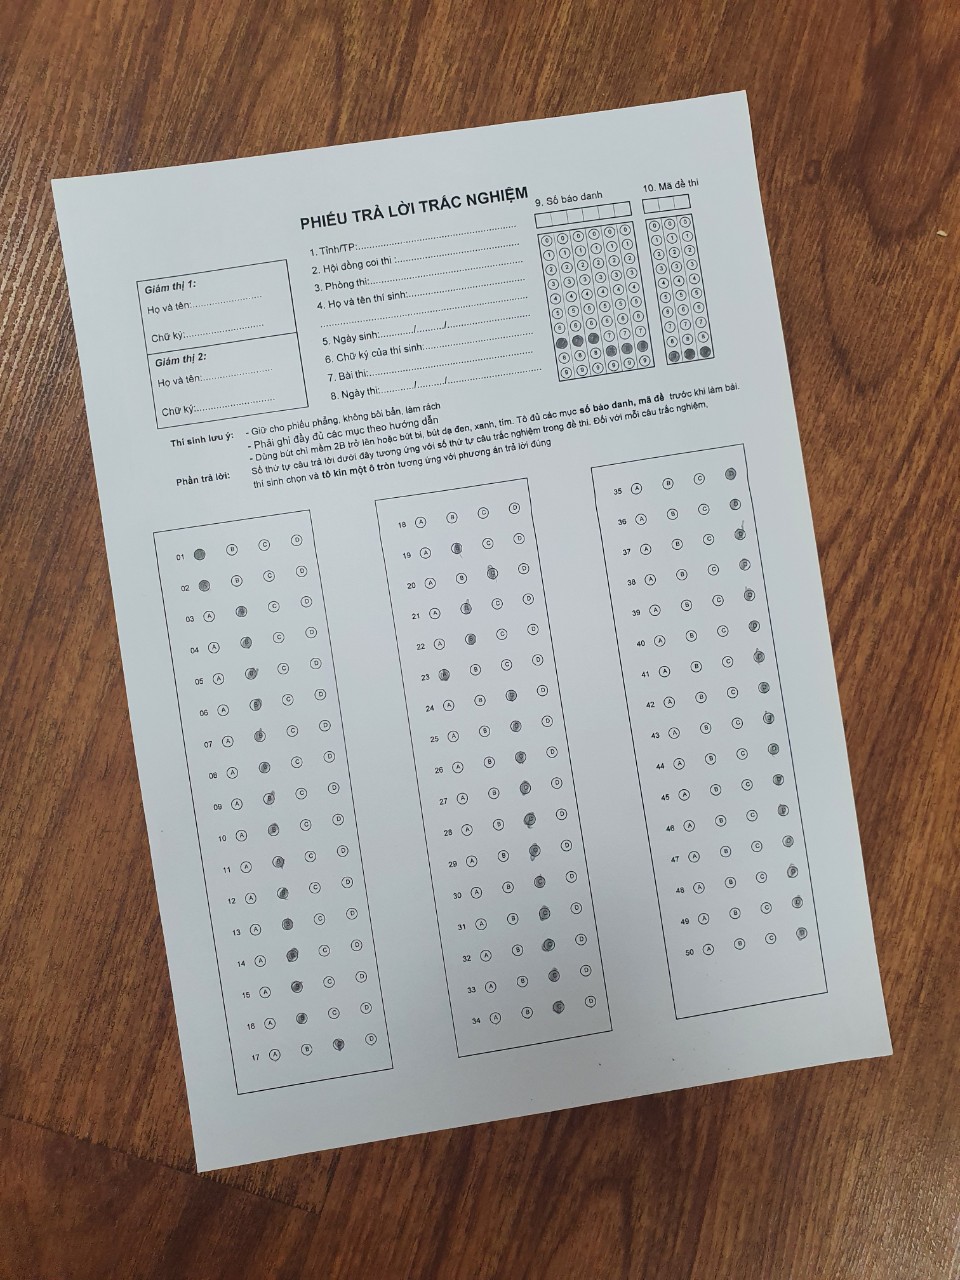 PHIẾU TRẢ LỜI TRẮC NGHIỆM
Giám thị 1:
Họ và tên:........................
Chữ ký:...........................
Giám thị 2:
Họ và tên:........................
Chữ ký:...........................
1. Tỉnh/TP:......................................................
2. Hội đồng coi thi :..........................................
3. Phòng thi:.....................................................
4. Họ và tên thí sinh:........................................
5. Ngày sinh:.........../........../............................
6. Chữ ký của thí sinh:......................................
7. Bài thi:...........................................................
8. Ngày thi:.........../........../..............................
9. Số báo danh
0 0 0 0 0 0
1 1 1 1 1 1
2 2 2 2 2 2
3 3 3 3 3 3
4 4 4 4 4 4
5 5 5 5 5 5
6 6 6 6 6 6
7 7 7
8 8 8
9 9 9 9 9 9
10. Mã đề thi
0 0 0
1 1 1
2 2 2
3 3 3
4 4 4
5 5 5
6 6 6
7 7 7
8 8 8
Thí sinh lưu ý: - Giữ cho phiếu phẳng, không bôi bẩn, làm rách
- Phải ghi đầy đủ các mục theo hướng dẫn
- Dùng bút chì mềm 2B trở lên hoặc bút bi, bút dạ đen, xanh, tím. Tô đủ các mục số báo danh, mã đề trước khi làm bài.
Phần trả lời: Số thứ tự câu trả lời dưới đây tương ứng với số thứ tự câu trắc nghiệm trong đề thi. Đối với mỗi câu trắc nghiệm,
thí sinh chọn và tô kín một ô tròn tương ứng với phương án trả lời đúng
01 B C D
02 B C D
03 A B C D
04 A B C D
05 A B C D
06 A B C D
07 A B C D
08 A B C D
09 A B C D
10 A B C D
11 A B C D
12 A B C D
13 A B C D
14 A B C D
15 A B C D
16 A B C D
17 A B C D
18 A B C D
19 A B C D
20 A B C D
21 A B C D
22 A B C D
23 A B C D
24 A B C D
25 A B C D
26 A B C D
27 A B C D
28 A B C D
29 A B C D
30 A B C D
31 A B C D
32 A B C D
33 A B C D
34 A B C D
35 A B C D
36 A B C D
37 A B C D
38 A B C D
39 A B C D
40 A B C D
41 A B C D
42 A B C D
43 A B C D
44 A B C D
45 A B C D
46 A B C D
47 A B C D
48 A B C D
49 A B C D
50 A B C D